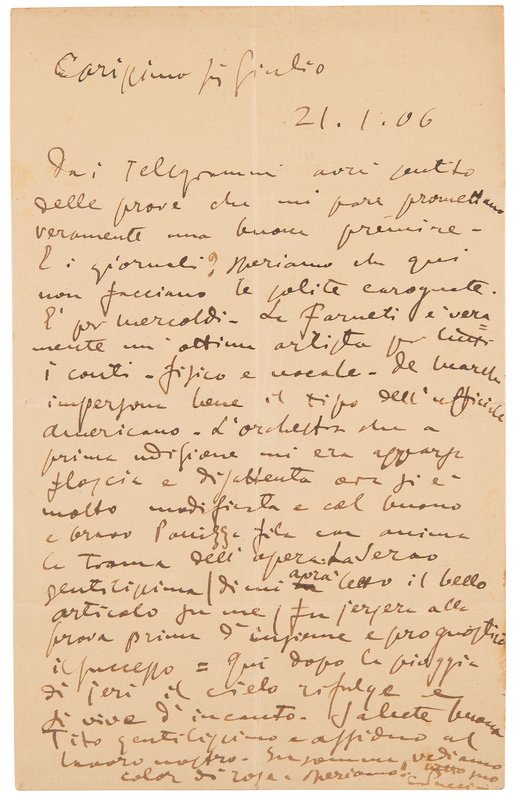 Carissimo Sig Giulio
21.1.06
Dai Telegrammi avrà sentito
delle prove che mi pare promettano
veramente una buona première -
E i giornali? speriamo che qui
non facciano le solite carognate.
E' per mercoldì - La Farneti è vera=
mente un' ottima artista per tutti
i conti - fisico e vocale - De Marchi
impersona bene il tipo dell' ufficiale
americano - L'orchestra che a
prima udizione mi era apparsa
floscia e disattenta ora si è
molto modificata e col buono
e bravo Panizza fila con anima
la trama dell' opera. La Serao
gentilissima (di mi avrà letto il bello
articolo su me) fu jersera alla
prova prima d' insieme e prognosticò
il successo = Qui dopo la pioggia
di jeri il cielo rifulge e
si vive d' incanto - Salute buona
Tito gentilissimo e assiduo al
lavoro nostro - Insomma, vediamo
color di rosa e speriamo. suo
Puccini